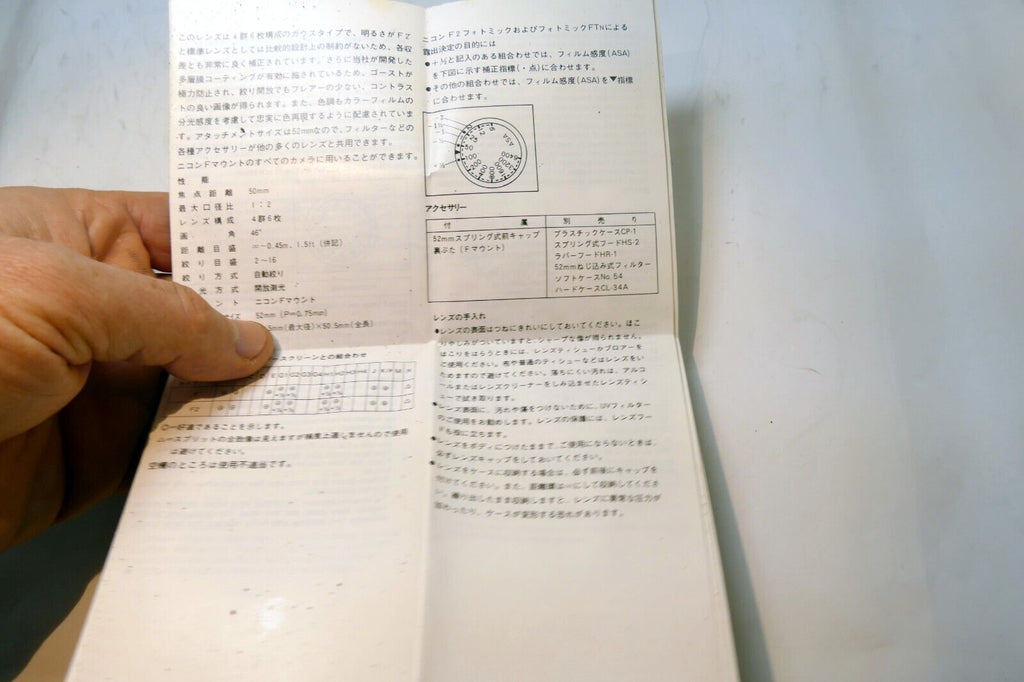 このレンズは4群6枚構成のガウスタイプで、明るさがF2
と標準レンズとしては比較的設計上の制約がないため、各収
差とも非常に良く補正されています。さらに当社が開発した
多層膜コーティングが有効に施されているため、ゴーストが
極力防止され、絞り開放でもフレアーの少ない、コントラス
トの良い画像が得られます。また、色調もカラーフィルムの
分光感度を考慮して忠実に色再現するように配慮されていま
す。アタッチメントサイズは52mmなので、フィルターなどの
各種アクセサリーが他の多くのレンズと共用できます。
ニコンFマウントのすべてのカメラに用いることができます。
性能
焦点距離 50mm
最大口径比 1:2
レンズ構成 4群6枚
画角 46°
距離目盛 ∞~0.45m、1.5ft(併記)
絞り目盛 2~16
絞り方式 自動絞り
光方式 開放測光
ント ニコンFマウント
イズ 52mm (P=0.75mm)
5mm(最大径)×50.5mm(全長)
スクリーンとの組合わせ
F2
◎一好適であることを示します。
は避けてください。
空欄のところは使用不適当です。
ニコンF2フォトミックおよびフォトミックFTNによる
露出決定の目的には
●+½と記入のある組合わせでは、フィルム感度(ASA)
を下図に示す補正指標(・点)に合わせます。
●その他の組合わせでは、フィルム感度(ASA)を▼指標
に合わせます。
ASA
6400
アクセサリー
付属 別売り
52mmスプリング式前キャップ プラスチックケースCP-1
裏ぶた(Fマウント) スプリング式フードHS-2
ラバーフードHR-1
52mmねじ込み式フィルター
ソフトケースNo.54
ハードケースCL-34A
レンズの手入れ
●レンズの表面はつねにきれいにしておいてください。ほこ
りやしみがついていますと、シャープな像が得られません。
ほこりをはらうときには、レンズティシューかブロアーを
ご使用ください。布や普通のティシューなどはレンズをい
ためますので避けてください。落ちにくい汚れは、アルコ
ールまたはレンズクリーナーをしみ込ませたレンズティシ
ューで拭き取ります。
●レンズ表面に、汚れや傷をつけないために、UVフィルター
のご使用をお勧めします。レンズの保護には、レンズフー
ドも役に立ちます。
●レンズをボディにつけたままで、ご使用にならないときは、
必ずレンズキャップをしておいてください。
●レンズをケースに収納する場合は、必ず前後にキャップを
付けてください。また、距離環は∞にして収納してくださ
い。繰り出したまま収納しますと、レンズに異常な圧力が
加わったり、ケースが変形する恐れがあります。